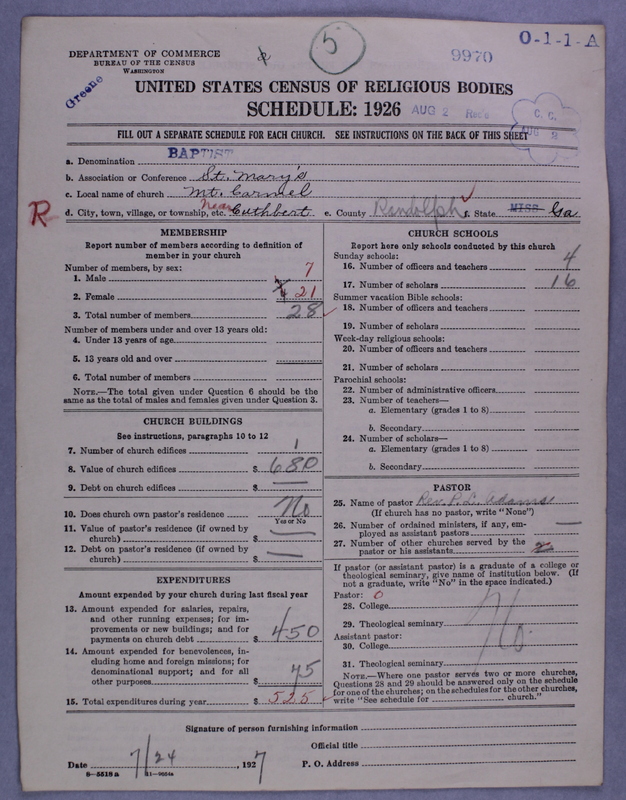 DEPARTMENT OF COMMERCE
BUREAU OF THE CENSUS
WASHINGTON
5
9970
O-1-1-A
Greene
UNITED STATES CENSUS OF RELIGIOUS BODIES
SCHEDULE: 1926
AUG 2 Rec'd
C. C.
AUG 2
FILL OUT A SEPARATE SCHEDULE FOR EACH CHURCH. SEE INSTRUCTIONS ON THE BACK OF THIS SHEET
a. Denomination BAPTIST
b. Association or Conference St. Mary's
c. Local name of church Mt. Carmel
R
d. City, town, village, or township, etc. Near Cuthbert e. County Randolph f. State MISS Ga
MEMBERSHIP
Report number of members according to definition of
member in your church
Number of members, by sex:
1. Male 7
2. Female 21
3. Total number of members 28
Number of members under and over 13 years old:
4. Under 13 years of age
5. 13 years old and over
6. Total number of members
NOTE.—The total given under Question 6 should be the
same as the total of males and females given under Question 3.
CHURCH BUILDINGS
See instructions, paragraphs 10 to 12
7. Number of church edifices 1
8. Value of church edifices $ 680
9. Debt on church edifices $ —
10. Does church own pastor's residence No
Yes or No
11. Value of pastor's residence (if owned by
church) $ —
12. Debt on pastor's residence (if owned by
church) $ —
EXPENDITURES
Amount expended by your church during last fiscal year
13. Amount expended for salaries, repairs,
and other running expenses; for im-
provements or new buildings; and for
payments on church debt $ 450
14. Amount expended for benevolences, in-
cluding home and foreign missions; for
denominational support; and for all
other purposes $ 75
15. Total expenditures during year $ 525
CHURCH SCHOOLS
Report here only schools conducted by this church
Sunday schools:
16. Number of officers and teachers 4
17. Number of scholars 16
Summer vacation Bible schools:
18. Number of officers and teachers
19. Number of scholars
Week-day religious schools:
20. Number of officers and teachers
21. Number of scholars
Parochial schools:
22. Number of administrative officers
23. Number of teachers—
a. Elementary (grades 1 to 8)
b. Secondary
24. Number of scholars—
a. Elementary (grades 1 to 8)
b. Secondary
PASTOR
25. Name of pastor Rev. P. L. Adams
(If church has no pastor, write "None")
26. Number of ordained ministers, if any, em-
ployed as assistant pastors —
27. Number of other churches served by the
pastor or his assistants
If pastor (or assistant pastor) is a graduate of a college or
theological seminary, give name of institution below. (If
not a graduate, write "No" in the space indicated.)
Pastor: 0
28. College
29. Theological seminary No
Assistant pastor:
30. College
31. Theological seminary
NOTE.—Where one pastor serves two or more churches,
Questions 28 and 29 should be answered only on the schedule
for one of the churches; on the schedules for the other churches,
write "See schedule for church."
Signature of person furnishing information
Official title
Date 7/24, 1927 P. O. Address
8-5518 a 11-9654a